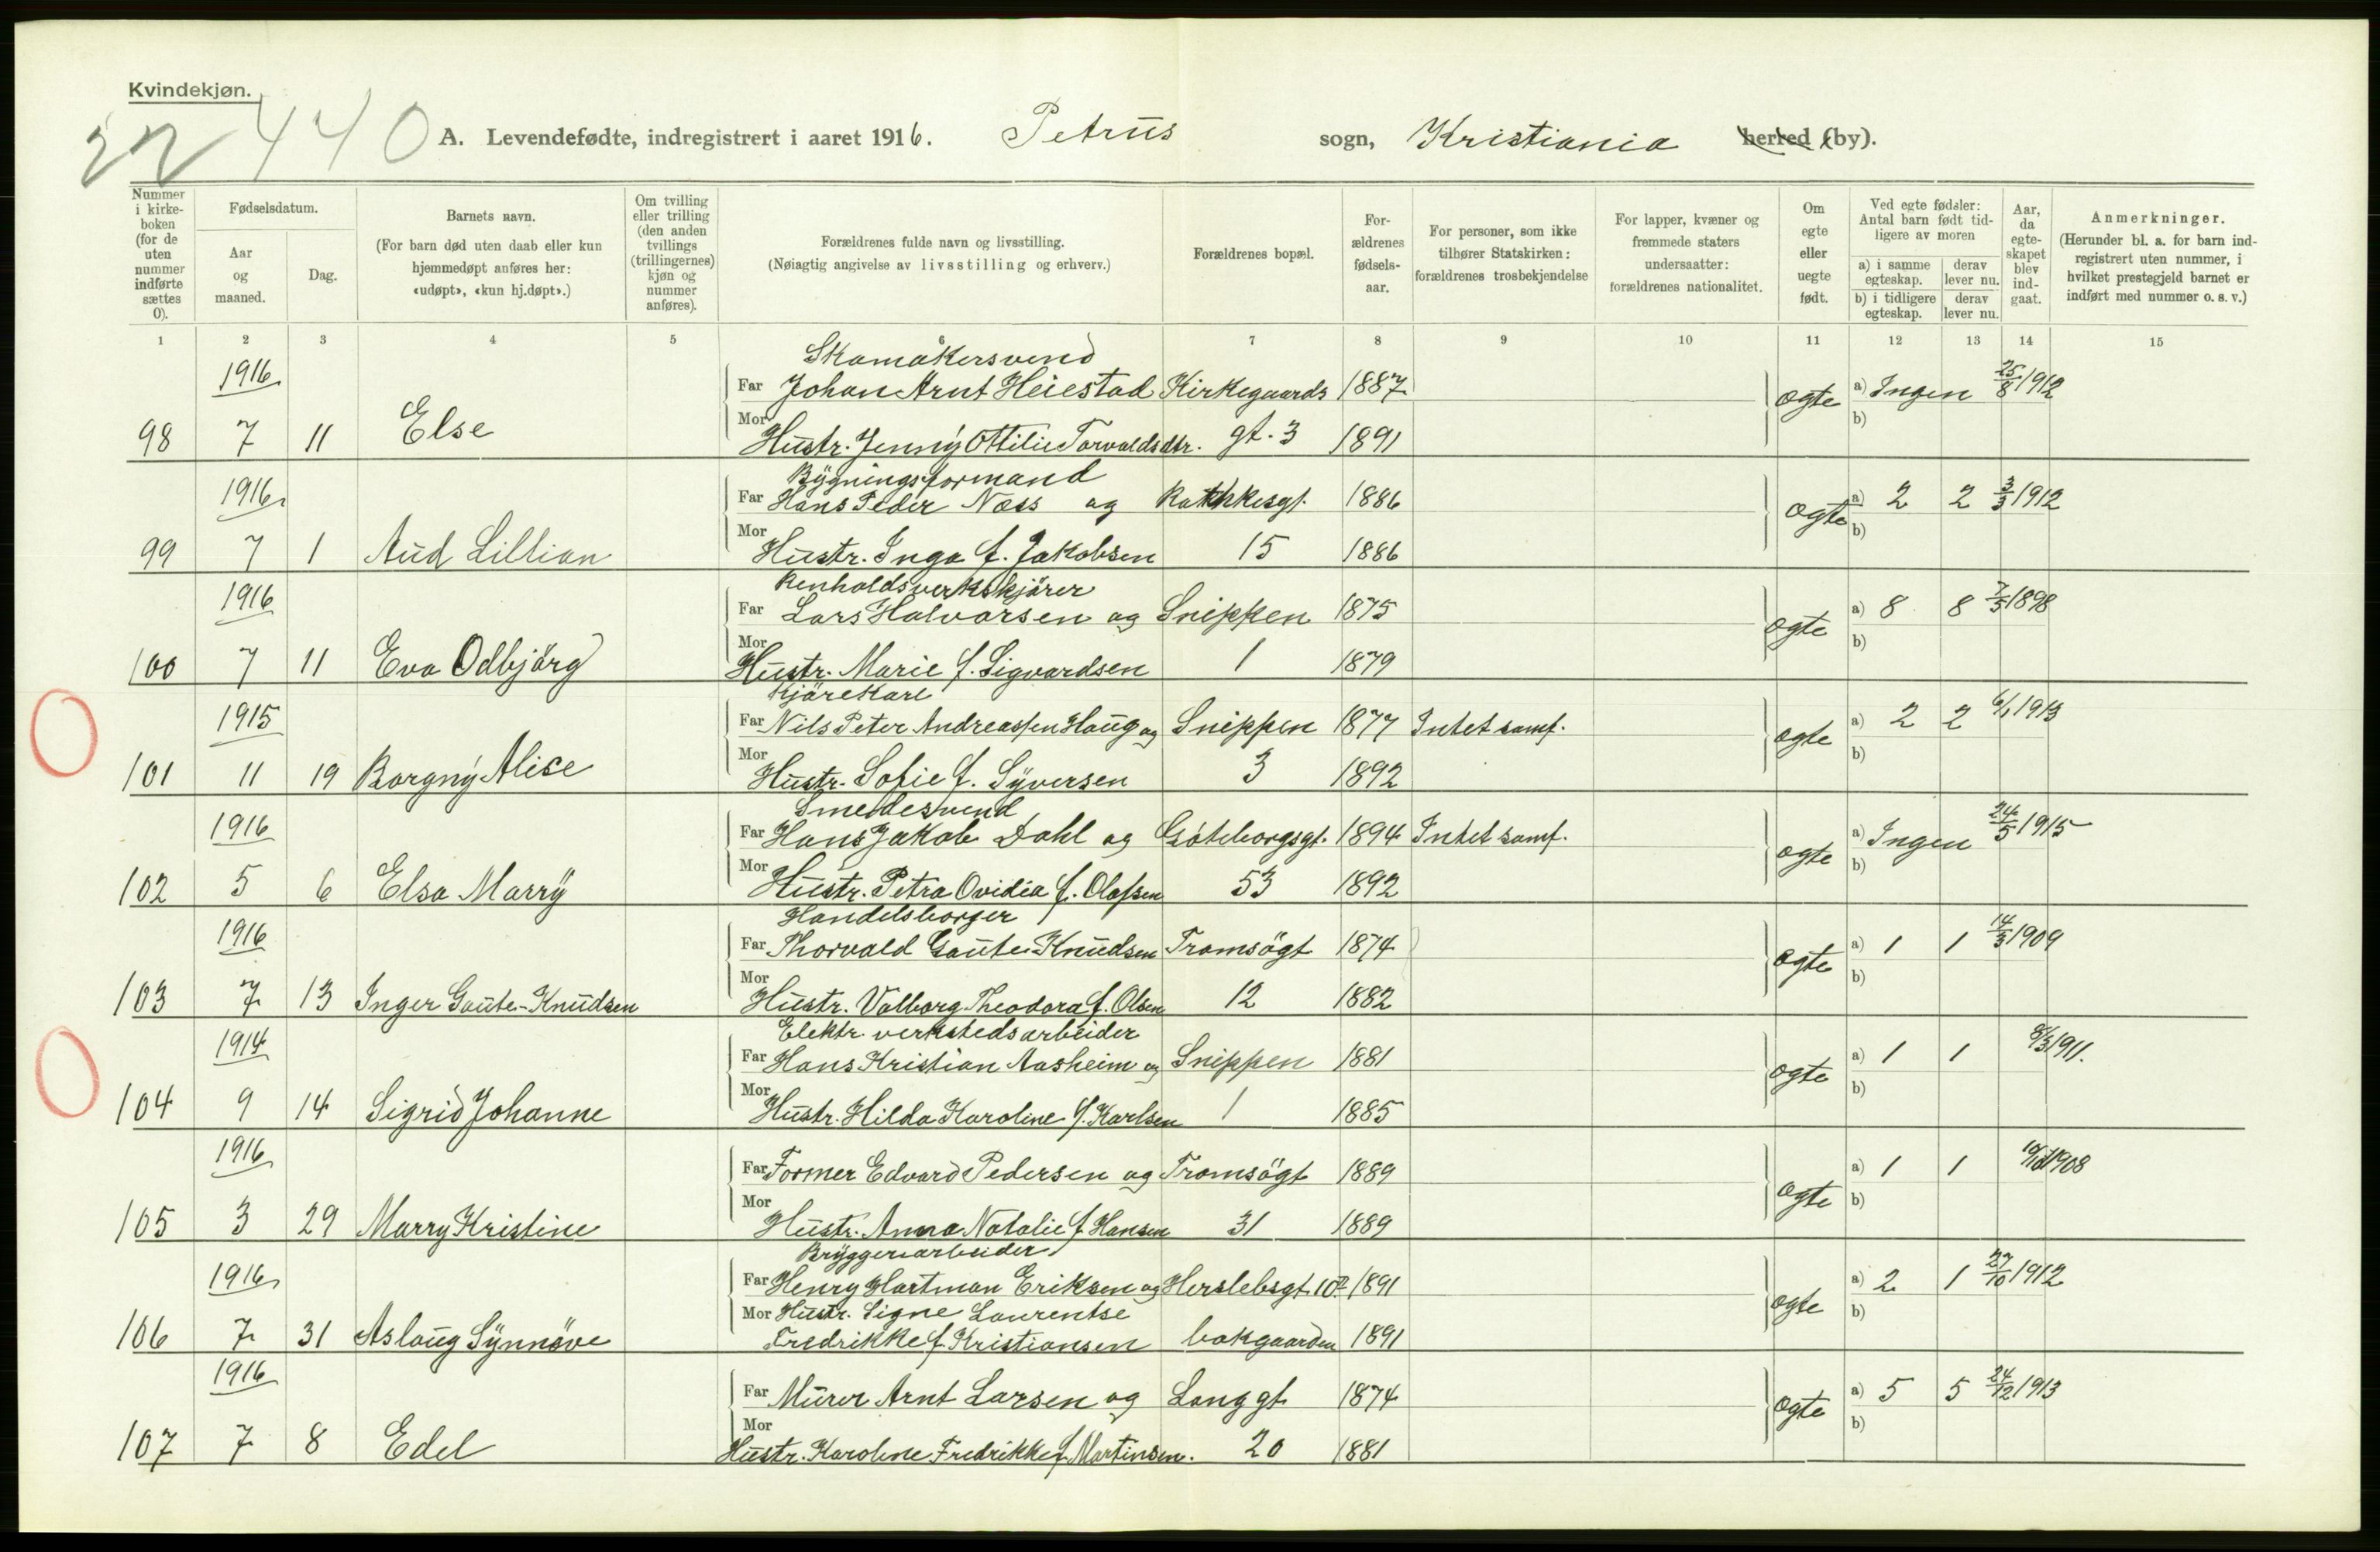 Kvindekjøn.
22 440
A. Levendefødte, indregistrert i aaret 1916. Petrus sogn, Kristiania herred (by).
Nummer i kirkeboken (for de uten nummer indførte sættes 0).
Fødselsdatum.
Aar og maaned.
Dag.
Barnets navn.
(For barn død uten daab eller kun hjemmedøpt anføres her: «udøpt», «kun hj.døpt».)
Om tvilling eller trilling (den anden tvillings (trillingernes) kjøn og nummer anføres).
Forældrenes fulde navn og livsstilling.
(Nøiagtig angivelse av livsstilling og erhverv.)
Forældrenes bopæl.
Forældrenes fødselsaar.
For personer, som ikke tilhører Statskirken: forældrenes trosbekjendelse
For lapper, kvæner og fremmede staters undersaatter: forældrenes nationalitet.
Om egte eller uegte født.
Ved egte fødsler: Antal barn født tidligere av moren
a) i samme egteskap. derav lever nu.
b) i tidligere egteskap. derav lever nu.
Aar, da egteskapet blev indgaat.
Anmerkninger.
(Herunder bl. a. for barn indregistrert uten nummer, i hvilket prestegjeld barnet er indført med nummer o. s. v.)
1 2 3 4 5 6 7 8 9 10 11 12 13 14 15
Skomakersvend
1916 Far Johan Arnt Heiestad Kirkegaards 1887 ogte a) Ingen 25/8 1912
98 7 11 Else Mor Hustr. Jenny Ottilie Torvaldsdtr. gt. 3 1891 b)
Bygningsformand
1916 Far Hans Peder Næss og Rathkesgt. 1886 ogte a) 2 2 3/3 1912
99 7 1 Aud Lillian Mor Hustr. Inga f. Jakobsen 15 1886 b)
Renholdsverkskjörer
1916 Far Lars Halvorsen og Snippen 1875 ogte a) 8 8 7/5 1898
100 7 11 Eva Odbjörg Mor Hustr. Marie f. Sigvardsen 1 1879 b)
Kjörekarl
1915 Far Nils Peter Andreassen Haug og Snippen 1877 Intet samf. ogte a) 2 2 6/1 1913
101 11 19 Borgny Alise Mor Hustr. Sofie f. Syversen 3 1892 b)
Smedesvend
1916 Far Hans Jakob Dahl og Göteborgsgt. 1894 Intet samf. ogte a) Ingen 24/5 1915
102 5 6 Elsa Marry Mor Hustr. Petra Ovidia f. Olafsen 53 1892 b)
Handelsborger
1916 Far Thorvald Gaute-Knudsen Tromsögt 1874 ogte a) 1 1 14/3 1909
103 7 13 Inger Gaute-Knudsen Mor Hustr. Valborg Theodora f. Olsen 12 1882 b)
Elektr. verkstedsarbeider
1914 Far Hans Kristian Aasheim og Snippen 1881 ogte a) 1 1 8/3 1911.
104 9 14 Sigrid Johanne Mor Hustr. Hilda Karoline f. Karlsen 1 1885 b)
1916 Far Former Edvard Pedersen og Tromsögt 1889 ogte a) 1 1 1908
105 3 29 Marry Kristine Mor Hustr. Anna Natalie f. Hansen 31 1889 b)
Bryggeriarbeider
1916 Far Henry Hartman Eriksen og Herslebsgt. 10 1891 ogte a) 2 1 27/10 1912
Mor Hustr. Signe Laurentse b)
106 7 31 Aslaug Synnöve Fredrikke f. Kristiansen bakgaarden 1891
1916 Far Murer Arnt Larsen og Langgt 1874 ogte a) 5 5 24/12 1913
107 7 8 Edel Mor Hustr. Karoline Fredrikke f. Martinsen. 20 1881 b)